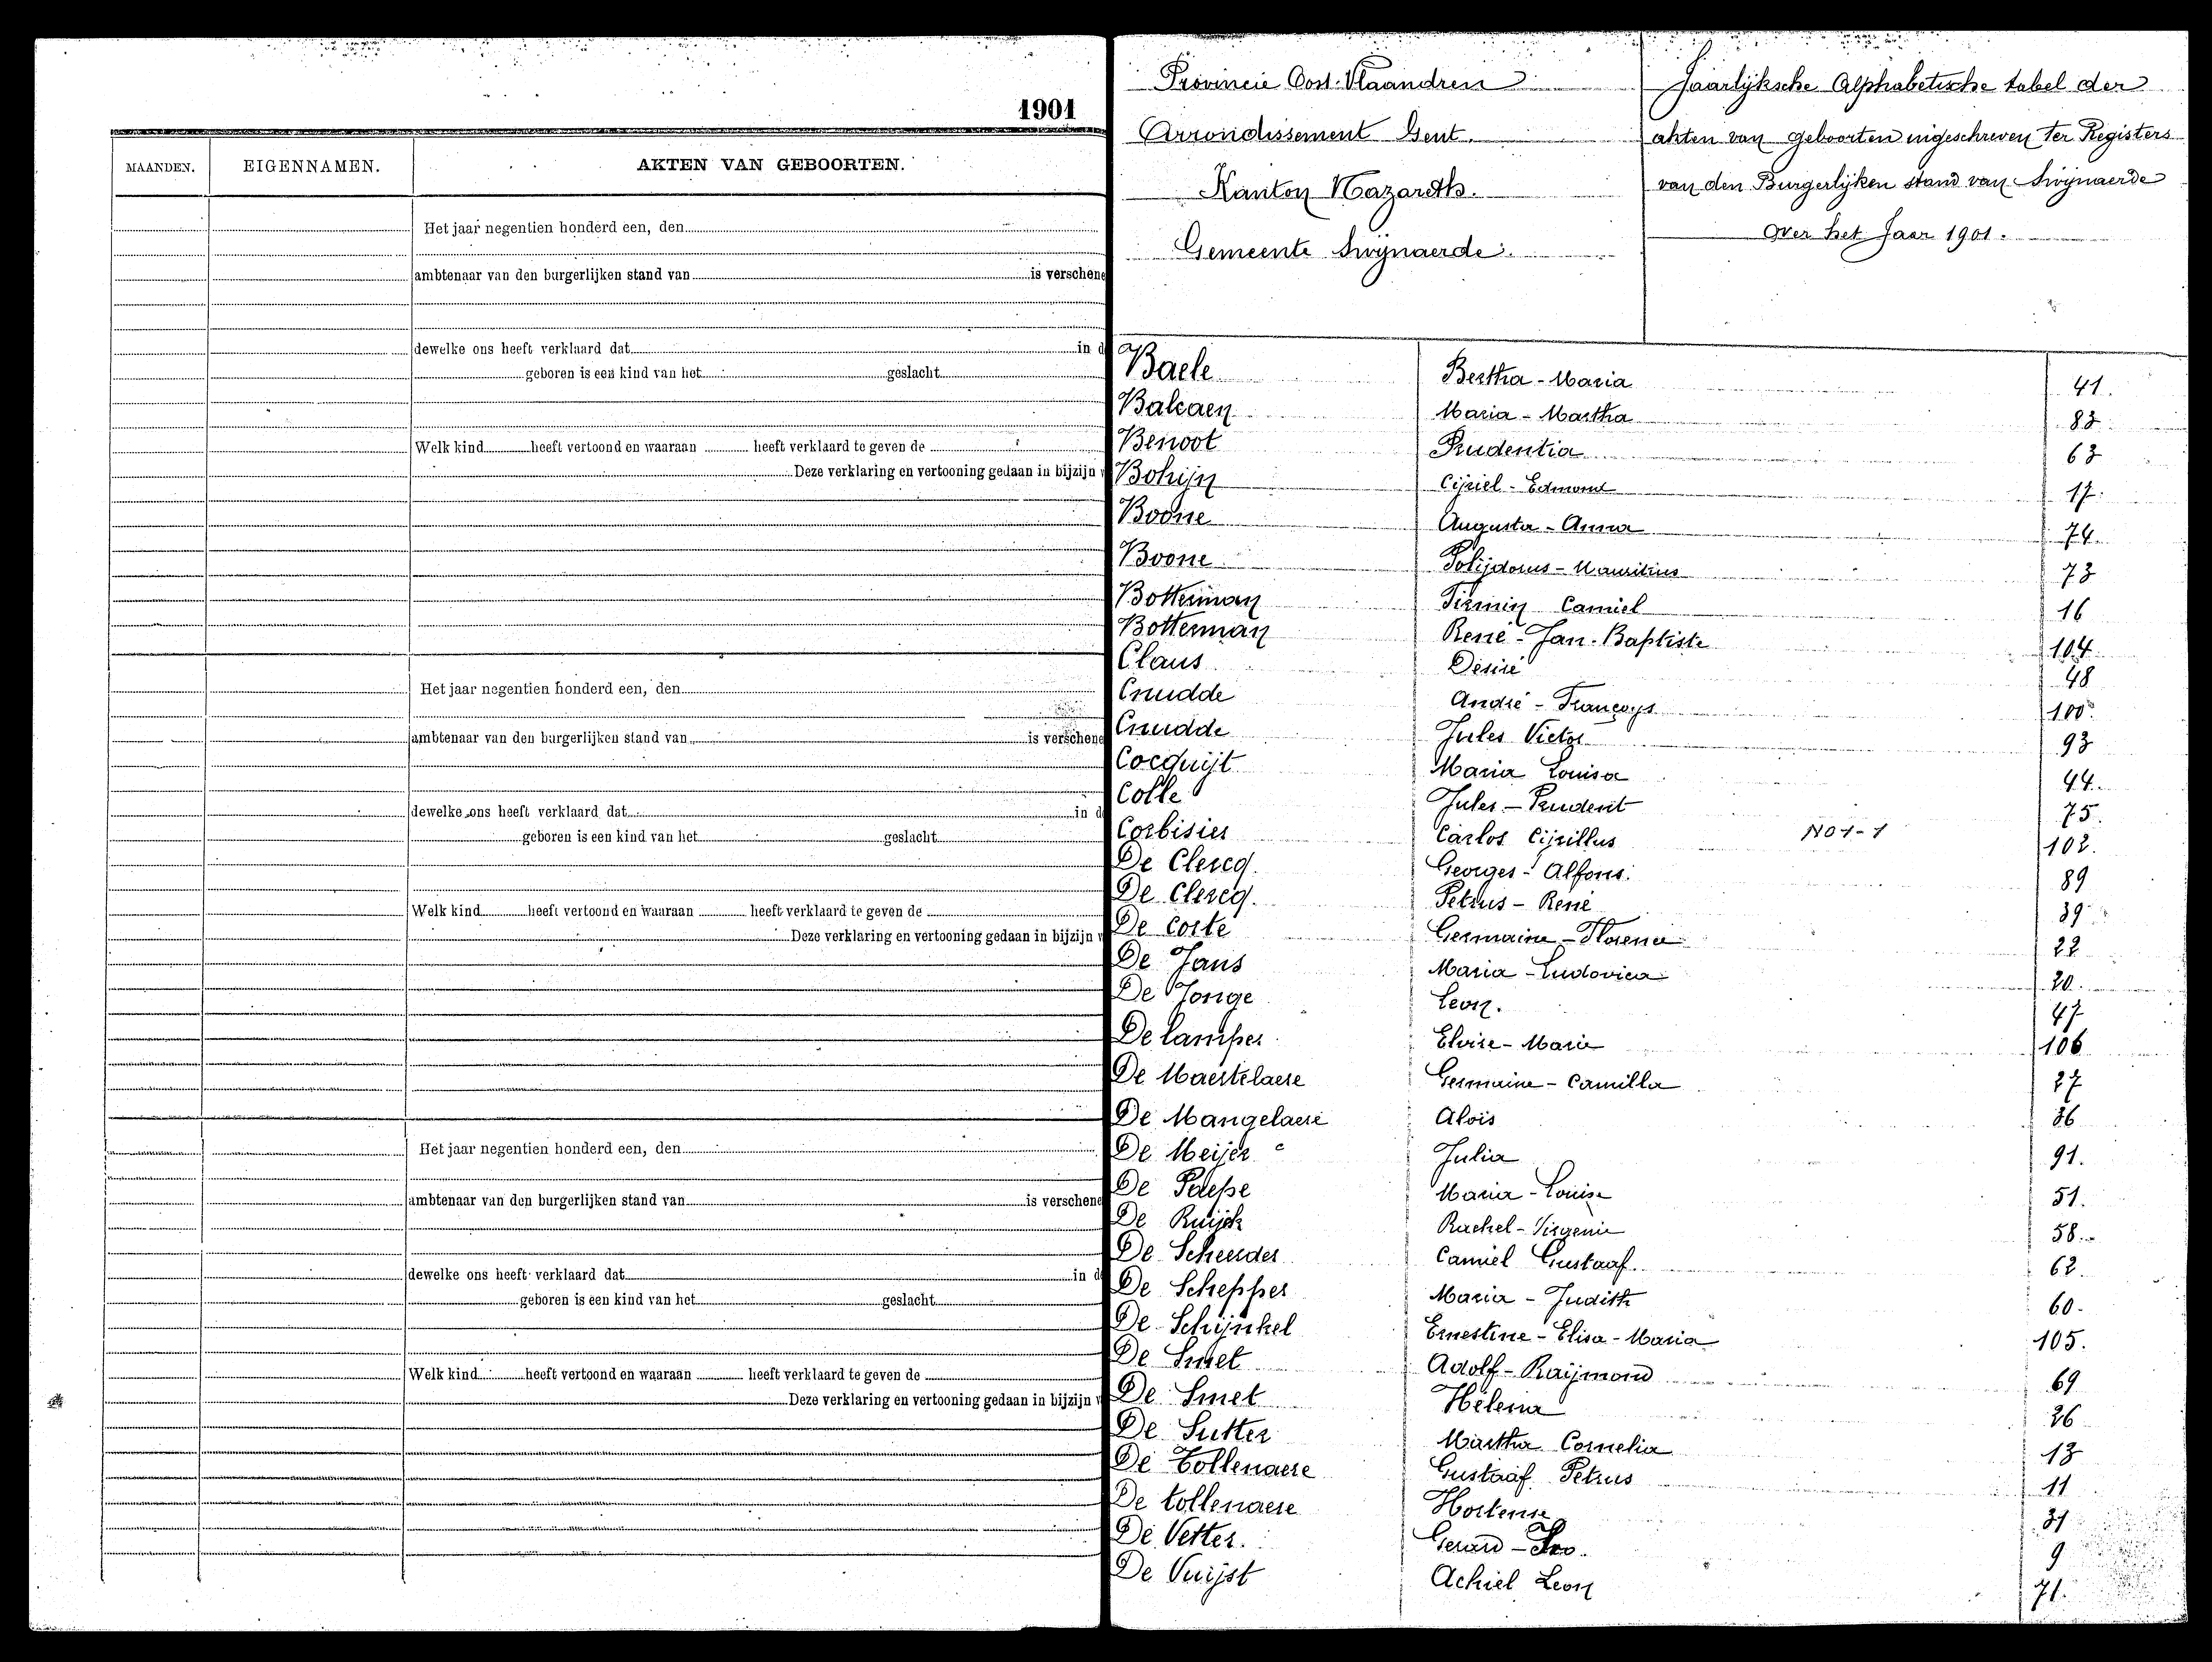 1901
MAANDEN. EIGENNAMEN. AKTEN VAN GEBOORTEN.
Het jaar negentien honderd een, den
ambtenaar van den burgerlijken stand van is verschene
dewelke ons heeft verklaard dat in d
geboren is een kind van het geslacht
Welk kind heeft vertoond en waaraan heeft verklaard te geven de
Deze verklaring en vertooning gedaan in bijzijn v
Het jaar negentien honderd een, den
ambtenaar van den burgerlijken stand van is verschene
dewelke ons heeft verklaard dat in d
geboren is een kind van het geslacht
Welk kind heeft vertoond en waaraan heeft verklaard te geven de
Deze verklaring en vertooning gedaan in bijzijn v
Het jaar negentien honderd een, den
ambtenaar van den burgerlijken stand van is verschene
dewelke ons heeft verklaard dat in d
geboren is een kind van het geslacht
Welk kind heeft vertoond en waaraan heeft verklaard te geven de
Deze verklaring en vertooning gedaan in bijzijn v
Provincie Oost-Vlaandren
Arrondissement Gent.
Kanton Nazareth.
Gemeente Swijnaerde.
Jaarlijksche Alphabetische tabel der
akten van geboorten ingeschreven ter Registers
van den Burgerlijken stand van Swijnaerde
over het Jaar 1901.
Baele Bertha-Maria 41.
Balcaen Maria-Martha 83
Benoot Prudentia 63
Bohijn Cijriel-Edmond 17.
Boone Augusta-Anna 74.
Boone Polijdorus-Mauritius 73
Botterman Firmin Camiel 16
Botterman René-Jan-Baptiste 104
Claus Désiré 48
Cnudde André-Françoys 100
Cnudde Jules Victor 93
Cocquijt Maria Louisa 44.
Colle Jules-Prudent 75.
Corbisier Carlos Cijrillus NO 1-1 102.
De Clercq. Georges-Alfons. 89
De Clercq. Petrus-René 39
De Corte Germaine-Florence 22
De Jans Maria-Ludovica 20.
De Jonge Leon. 47
De lamper Elvire-Marie 106
De Maertelaere Germaine-Camilla 27
De Mangelaere Aloïs 36
De Meijer Julia 91.
De Paepe Maria-Louise 51.
De Ruijck Rachel-Virgenie 58.
De Scheerder Camiel Gustaaf. 62.
De Schepper Maria-Judith 60.
De Schijnkel Ernestine-Elisa-Maria 105.
De Smet Adolf-Raijmond 69
De Smet Héléna 26
De Sutter Martha Cornelia 13
De Tollenaere Gustaaf Petrus 11
De tollenaere Hortense 31
De Vetter. Gerard- 9
De Vuijst Achiel Leon 71.